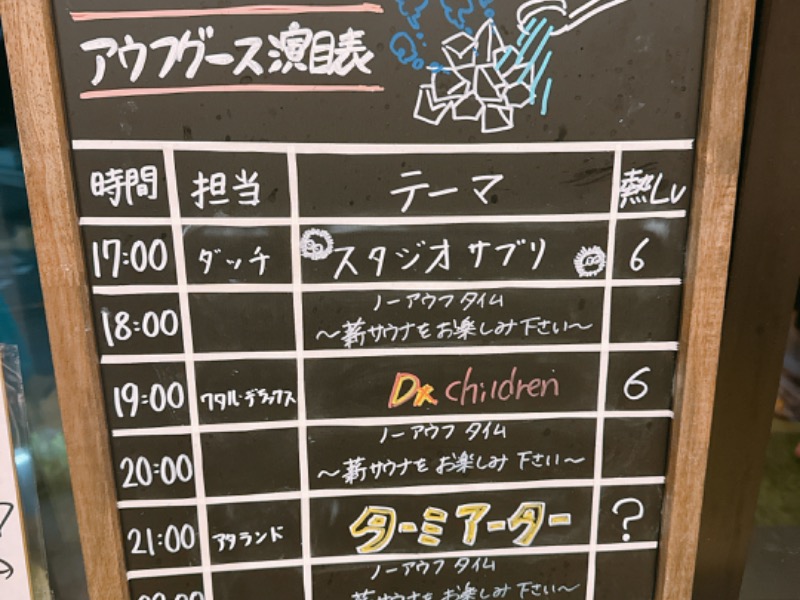 アウフグース演目表
時間 担当 テーマ 熱Lv
17:00 ダッチ スタジオサブリ 6
18:00 ノーアウフタイム
〜薪サウナをお楽しみ下さい〜
19:00 ワタル・デラックス Dx children 6
20:00 ノーアウフタイム
〜薪サウナをお楽しみ下さい〜
21:00 アタランド ターミアーター ?
ノーアウフタイム
〜薪サウナをお楽しみ下さい〜